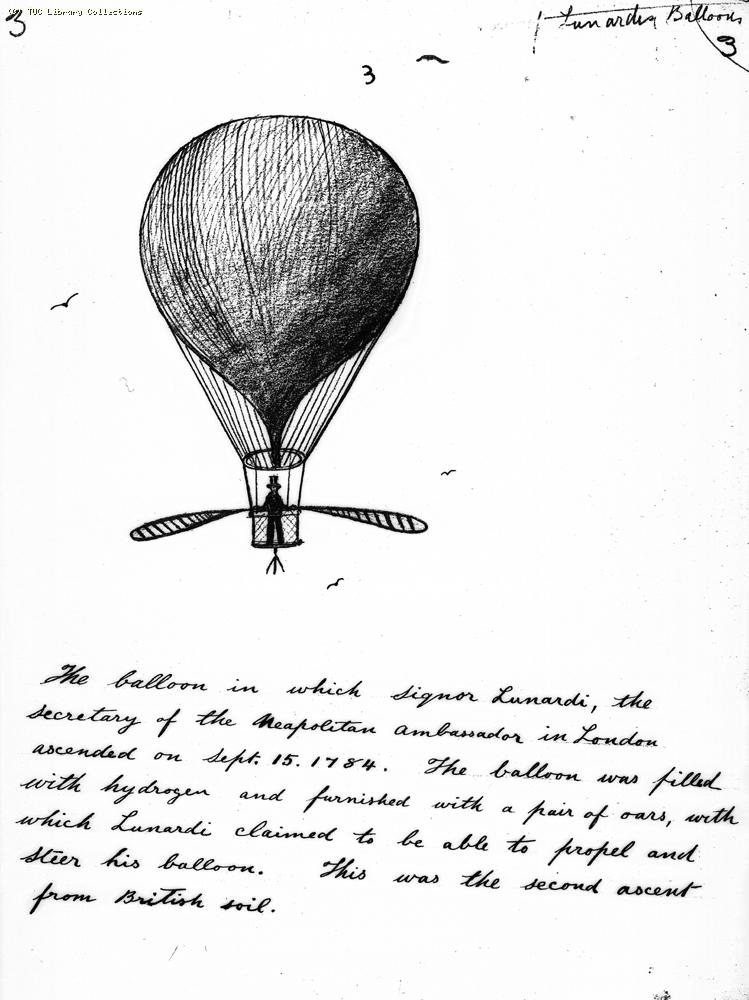 (C) TUC Library Collections
3
Lunardis Balloons
3
3
The balloon in which signor Lunardi, the
secretary of the Neapolitan ambassador in London
ascended on Sept. 15. 1784. The balloon was filled
with hydrogen and furnished with a pair of oars, with
which Lunardi claimed to be able to propel and
steer his balloon. This was the second ascent
from British soil.